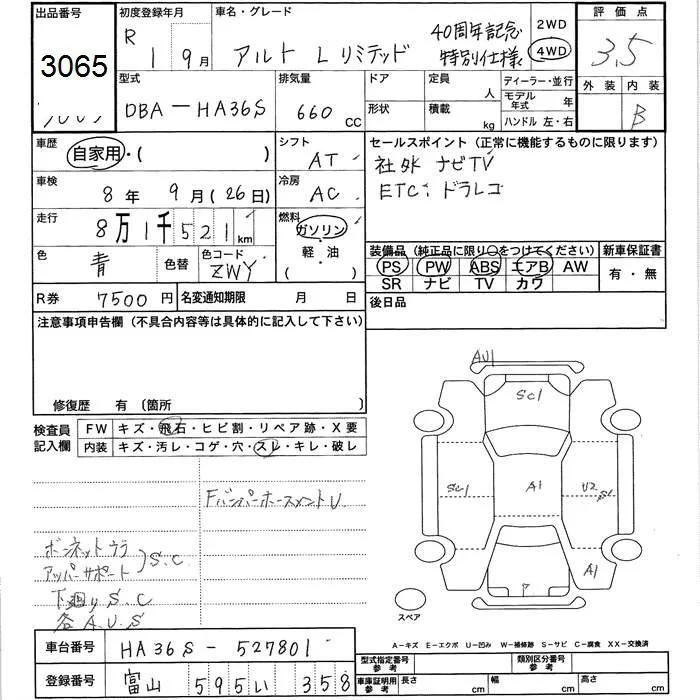 出品番号
3065
初度登録年月
R 1 9月
車名・グレード
アルト L リミテッド 40周年記念
特別仕様
2WD
4WD
評価点
3.5
外装 内装
B
型式
DBA-HA36S
排気量
660 CC
ドア
形状
定員 人
積載 kg
ディーラー・並行
モデル年式 年
ハンドル 左・右
車歴
自家用・( )
シフト
AT
車検
8年 9月(26日)
冷房
AC
走行
8万1千521km
燃料
ガソリン
軽・油
( )
色
青
色替
色コード
ZWY
R券 7500円
名変通知期限 月 日
セールスポイント(正常に機能するものに限ります)
社外 ナビTV
ETC; ドラレコ
装備品(純正品に限り○をつけてください)
PS PW ABS エアB AW
SR ナビ TV カワ
新車保証書
有・無
後日品
注意事項申告欄(不具合内容等は具体的に記入して下さい)
修復歴 有 〔箇所 〕
検査員
記入欄
FW キズ・飛石・ヒビ割・リペア跡・X要
内装 キズ・汚レ・コゲ・穴・スレ・キレ・破レ
FバンパーホースメントU
ボンネットウラ
アッパーサポート
S.C
下廻り S.C
各A.U.S
AU1
Sc1
Sc1
A1
U2
S1
A1
P
スペア
A-キズ E-エクボ U-凹み W-補修跡 S-サビ C-腐食 XX-交換済
車台番号 HA36S-527801
登録番号 富山 595い358
型式指定番号
参考
類別区分番号
参考
車庫証明用
参考
長さ cm
幅 cm
高さ cm